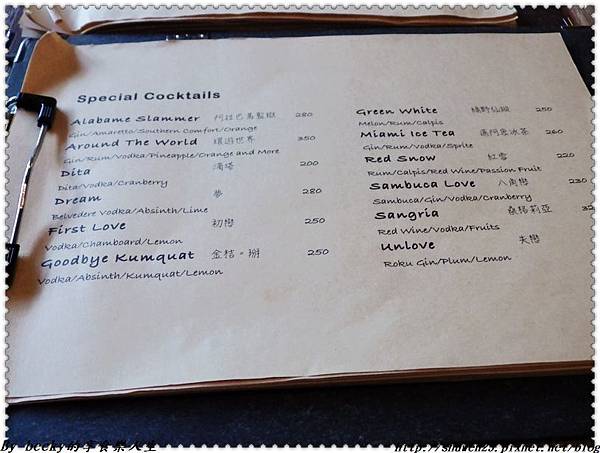 Special Cocktails
Alabame Slammer 阿拉巴馬監獄 280
Gin/Amaretto/Southern Comfort/Orange
Around The World 環遊世界 350
Gin/Rum/Vodka/Pineapple/Orange and More
Dita 滴塔 200
Dita/Vodka/Cranberry
Dream 夢 280
Belvedere Vodka/Absinth/Lime
First Love 初戀 250
Vodka/Chamboard/Lemon
Goodbye Kumquat 金桔。掰 250
Vodka/Absinth/Kumquat/Lemon
Green White 綠野仙蹤 250
Melon/Rum/Calpis
Miami Ice Tea 邁阿密冰茶 260
Gin/Rum/Vodka/Sprite
Red Snow 紅雪 220
Rum/Calpis/Red Wine/Passion Fruit
Sambuca Love 八角戀 230
Sambuca/Gin/Vodka/Cranberry
Sangria 桑格莉亞 32
Red Wine/Vodka/Fruits
Unlove 失戀
Roku Gin/Plum/Lemon
by becky的享食樂人生